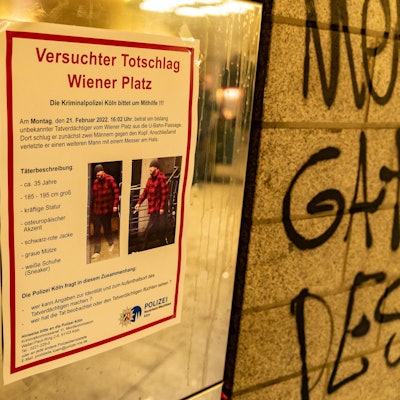 Versuchter Totschlag
Wiener Platz
Die Kriminalpolizei Köln bittet um Mithilfe !!!
Am Montag, den 21. Februar 2022, 16:02 Uhr, betrat ein bislang
unbekannter Tatverdächtiger vom Wiener Platz aus die U-Bahn-Passage.
Dort schlug er zunächst zwei Männern gegen den Kopf. Anschließend
verletzte er einen weiteren Mann mit einem Messer am Hals.
Täterbeschreibung:
- ca. 35 Jahre
- 185 - 195 cm groß
- kräftige Statur
- osteuropäischer
Akzent
- schwarz-rote Jacke
- graue Mütze
- weiße Schuhe
(Sneaker)
Die Polizei Köln fragt in diesem Zusammenhang:
- wer kann Angaben zur Identität und zum Aufenthaltsort des
Tatverdächtigen machen ?
- wer hat die Tat beobachtet oder den Tatverdächtigen flüchten sehen ?
Hinweise bitte an die Polizei Köln
POLIZEI
Nordrhein-Westfalen
Köln
GAT
DES